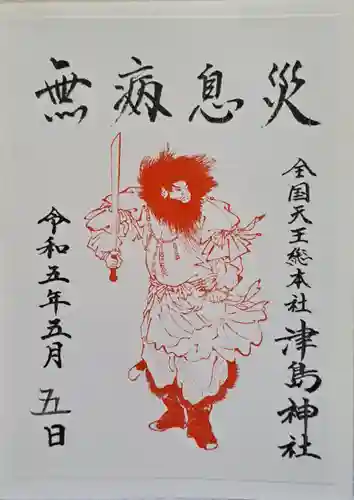 無病息災
全国天王総本社
津島神社
令和五年五月五日